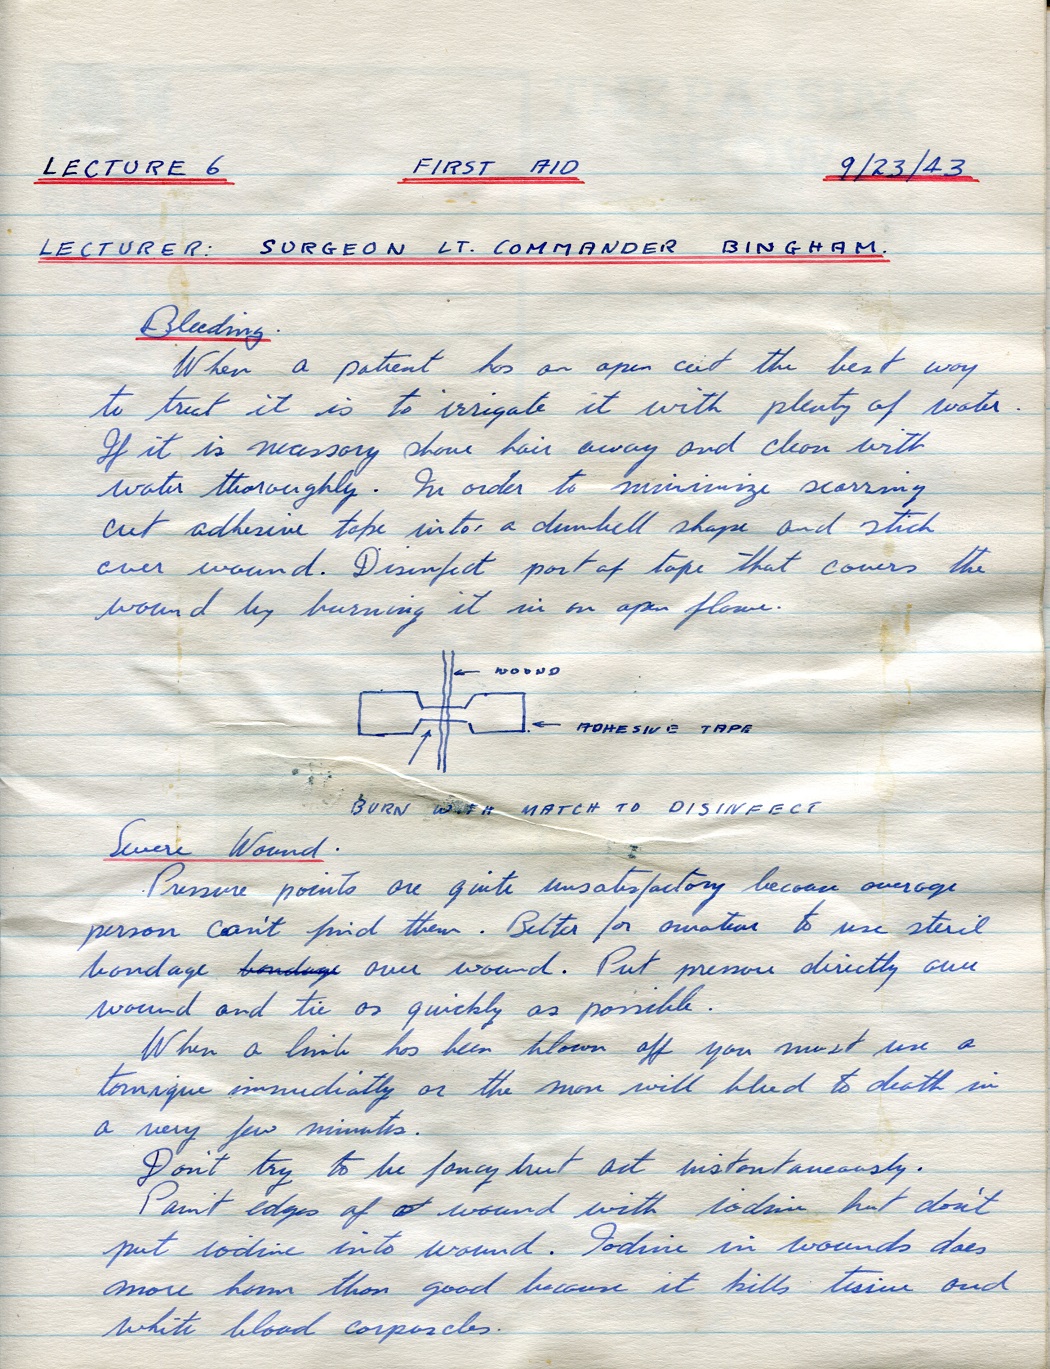 LECTURE 6 FIRST AID 9/23/43
LECTURER: SURGEON LT. COMMANDER BINGHAM.
Bleeding.
When a patient has an open cut the best way
to treat it is to irrigate it with plenty of water.
If it is necessary shave hair away and clean with
water thoroughly. In order to minimize scarring
cut adhesive tape into a dumbell shape and stick
over wound. Disinfect part of tape that covers the
wound by burning it in an open flame.
WOUND
ADHESIVE TAPE
BURN WITH MATCH TO DISINFECT
Severe Wound.
Pressure points are quite unsatisfactory because average
person can't find them. Better for amateur to use steril
bandage bandage over wound. Put pressure directly over
wound and tie as quickly as possible.
When a limb has been blown off you must use a
tornique immediatly or the man will bleed to death in
a very few minutes.
Don't try to be fancy but act instantaneously.
Paint edges of wound with iodine but don't
put iodine into wound. Iodine in wounds does
more harm than good because it kills tissue and
white blood corpuscles.